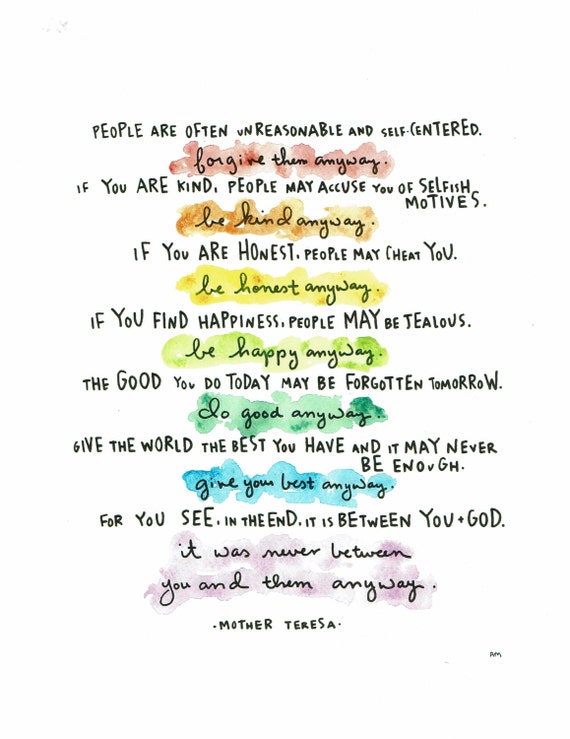 PEOPLE ARE OFTEN UNREASONABLE AND SELF-CENTERED.
forgive them anyway.
IF YOU ARE KIND, PEOPLE MAY ACCUSE YOU OF SELFISH
MOTIVES.
be kind anyway.
IF YOU ARE HONEST, PEOPLE MAY CHEAT YOU.
be honest anyway.
IF YOU FIND HAPPINESS, PEOPLE MAY BE JEALOUS.
be happy anyway.
THE GOOD YOU DO TODAY MAY BE FORGOTTEN TOMORROW.
do good anyway.
GIVE THE WORLD THE BEST YOU HAVE AND IT MAY NEVER
BE ENOUGH.
give your best anyway.
FOR YOU SEE, IN THE END, IT IS BETWEEN YOU + GOD.
it was never between
you and them anyway.
·MOTHER TERESA·
AM